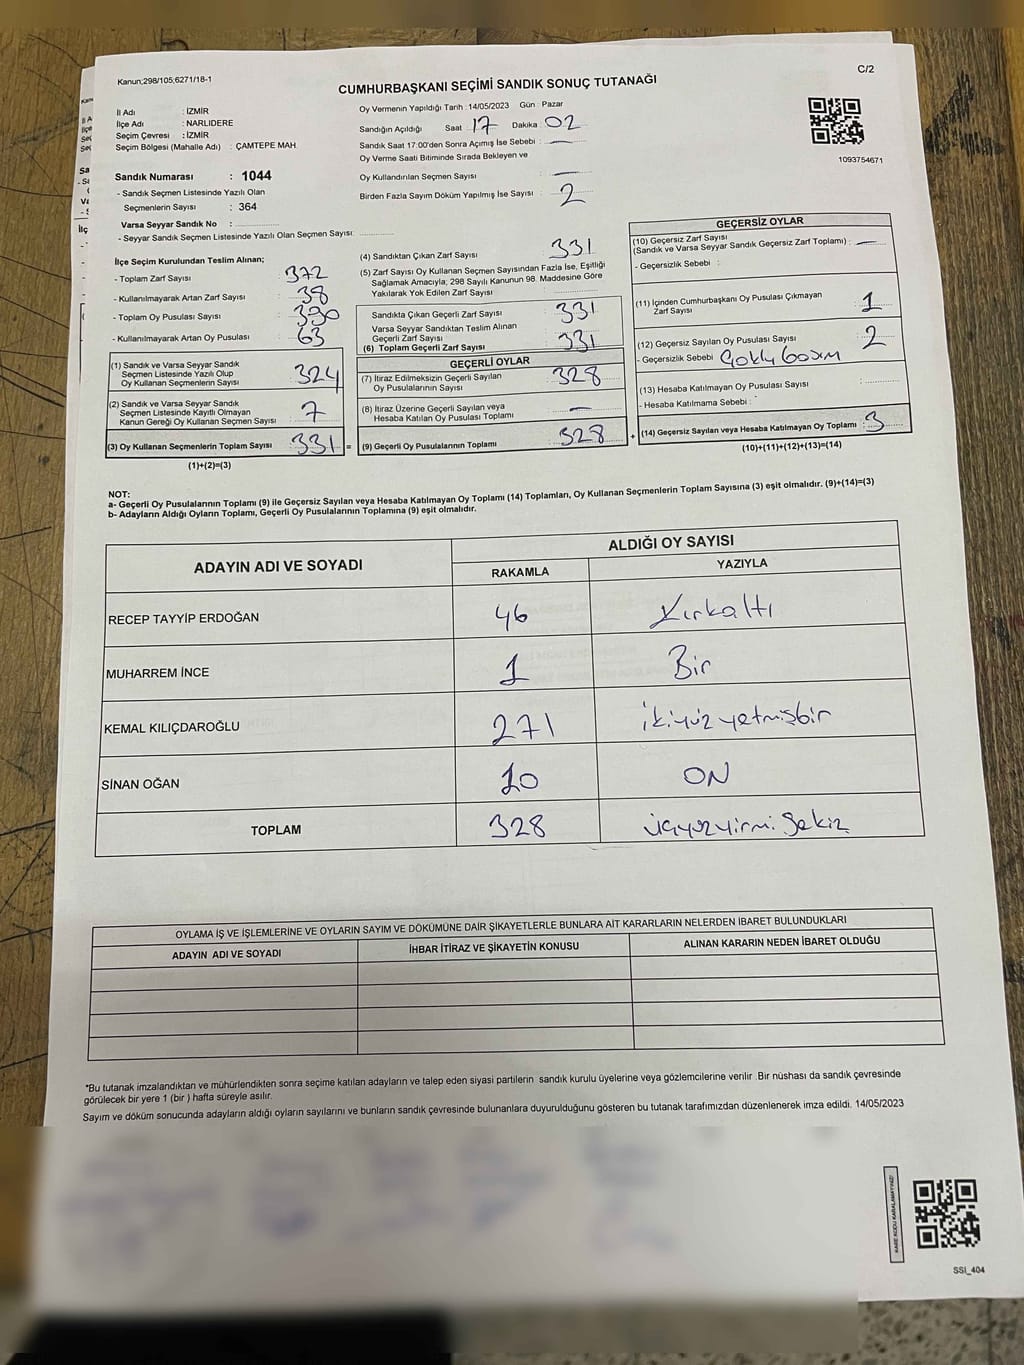 Kanun;298/105;6271/18-1
C/2
CUMHURBAŞKANI SEÇİMİ SANDIK SONUÇ TUTANAĞI
İl Adı : İZMİR
İlçe Adı : NARLIDERE
Seçim Çevresi : İZMİR
Seçim Bölgesi (Mahalle Adı) : ÇAMTEPE MAH
Oy Vermenin Yapıldığı Tarih : 14/05/2023 Gün : Pazar
Sandığın Açıldığı Saat 17 Dakika 02
Sandık Saat 17:00'den Sonra Açımış İse Sebebi : —
Oy Verme Saati Bitiminde Sırada Bekleyen ve
Oy Kullandırılan Seçmen Sayısı : —
Birden Fazla Sayım Döküm Yapılmış İse Sayısı : 2
1093754671
Sandık Numarası : 1044
- Sandık Seçmen Listesinde Yazılı Olan
Seçmenlerin Sayısı : 364
Varsa Seyyar Sandık No :
- Seyyar Sandık Seçmen Listesinde Yazılı Olan Seçmen Sayısı:
İlçe Seçim Kurulundan Teslim Alınan;
- Toplam Zarf Sayısı 372
- Kullanılmayarak Artan Zarf Sayısı 38
- Toplam Oy Pusulası Sayısı 390
- Kullanılmayarak Artan Oy Pusulası 63
(1) Sandık ve Varsa Seyyar Sandık
Seçmen Listesinde Yazılı Olup
Oy Kullanan Seçmenlerin Sayısı 324
(2) Sandık ve Varsa Seyyar Sandık
Seçmen Listesinde Kayıtlı Olmayan
Kanun Gereği Oy Kullanan Seçmen Sayısı 7
(3) Oy Kullanan Seçmenlerin Toplam Sayısı 331 =
(1)+(2)=(3)
(4) Sandıktan Çıkan Zarf Sayısı 331
(5) Zarf Sayısı Oy Kullanan Seçmen Sayısından Fazla İse, Eşitliği
Sağlamak Amacıyla; 298 Sayılı Kanunun 98. Maddesine Göre
Yakılarak Yok Edilen Zarf Sayısı
Sandıkta Çıkan Geçerli Zarf Sayısı 331
Varsa Seyyar Sandıktan Teslim Alınan
Geçerli Zarf Sayısı
(6) Toplam Geçerli Zarf Sayısı 331
GEÇERLİ OYLAR
(7) İtiraz Edilmeksizin Geçerli Sayılan
Oy Pusulalarının Sayısı 328
(8) İtiraz Üzerine Geçerli Sayılan veya
Hesaba Katılan Oy Pusulası Toplamı —
(9) Geçerli Oy Pusulalarının Toplamı 328 +
GEÇERSİZ OYLAR
(10) Geçersiz Zarf Sayısı
(Sandık ve Varsa Seyyar Sandık Geçersiz Zarf Toplamı) : —
- Geçersizlik Sebebi :
(11) İçinden Cumhurbaşkanı Oy Pusulası Çıkmayan
Zarf Sayısı 1
(12) Geçersiz Sayılan Oy Pusulası Sayısı 2
- Geçersizlik Sebebi Çoklu basım
(13) Hesaba Katılmayan Oy Pusulası Sayısı
- Hesaba Katılmama Sebebi :
(14) Geçersiz Sayılan veya Hesaba Katılmayan Oy Toplamı : 3
(10)+(11)+(12)+(13)=(14)
NOT:
a- Geçerli Oy Pusulalarının Toplamı (9) ile Geçersiz Sayılan veya Hesaba Katılmayan Oy Toplamı (14) Toplamları, Oy Kullanan Seçmenlerin Toplam Sayısına (3) eşit olmalıdır. (9)+(14)=(3)
b- Adayların Aldığı Oyların Toplamı, Geçerli Oy Pusulalarının Toplamına (9) eşit olmalıdır.
ADAYIN ADI VE SOYADI
ALDIĞI OY SAYISI
RAKAMLA YAZIYLA
RECEP TAYYİP ERDOĞAN 46 Kırkaltı
MUHARREM İNCE 1 Bir
KEMAL KILIÇDAROĞLU 271 ikiyüz yetmişbir
SİNAN OĞAN 10 ON
TOPLAM 328 üçyüzyirmi Sekiz
OYLAMA İŞ VE İŞLEMLERİNE VE OYLARIN SAYIM VE DÖKÜMÜNE DAİR ŞİKAYETLERLE BUNLARA AİT KARARLARIN NELERDEN İBARET BULUNDUKLARI
ADAYIN ADI VE SOYADI İHBAR İTİRAZ VE ŞİKAYETİN KONUSU ALINAN KARARIN NEDEN İBARET OLDUĞU
*Bu tutanak imzalandıktan ve mühürlendikten sonra seçime katılan adayların ve talep eden siyasi partilerin sandık kurulu üyelerine veya gözlemcilerine verilir .Bir nüshası da sandık çevresinde
görülecek bir yere 1 (bir ) hafta süreyle asılır.
Sayım ve döküm sonucunda adayların aldığı oyların sayılarını ve bunların sandık çevresinde bulunanlara duyurulduğunu gösteren bu tutanak tarafımızdan düzenlenerek imza edildi. 14/05/2023
KARE KODU KARALAMAYINIZ!
SSİ_404